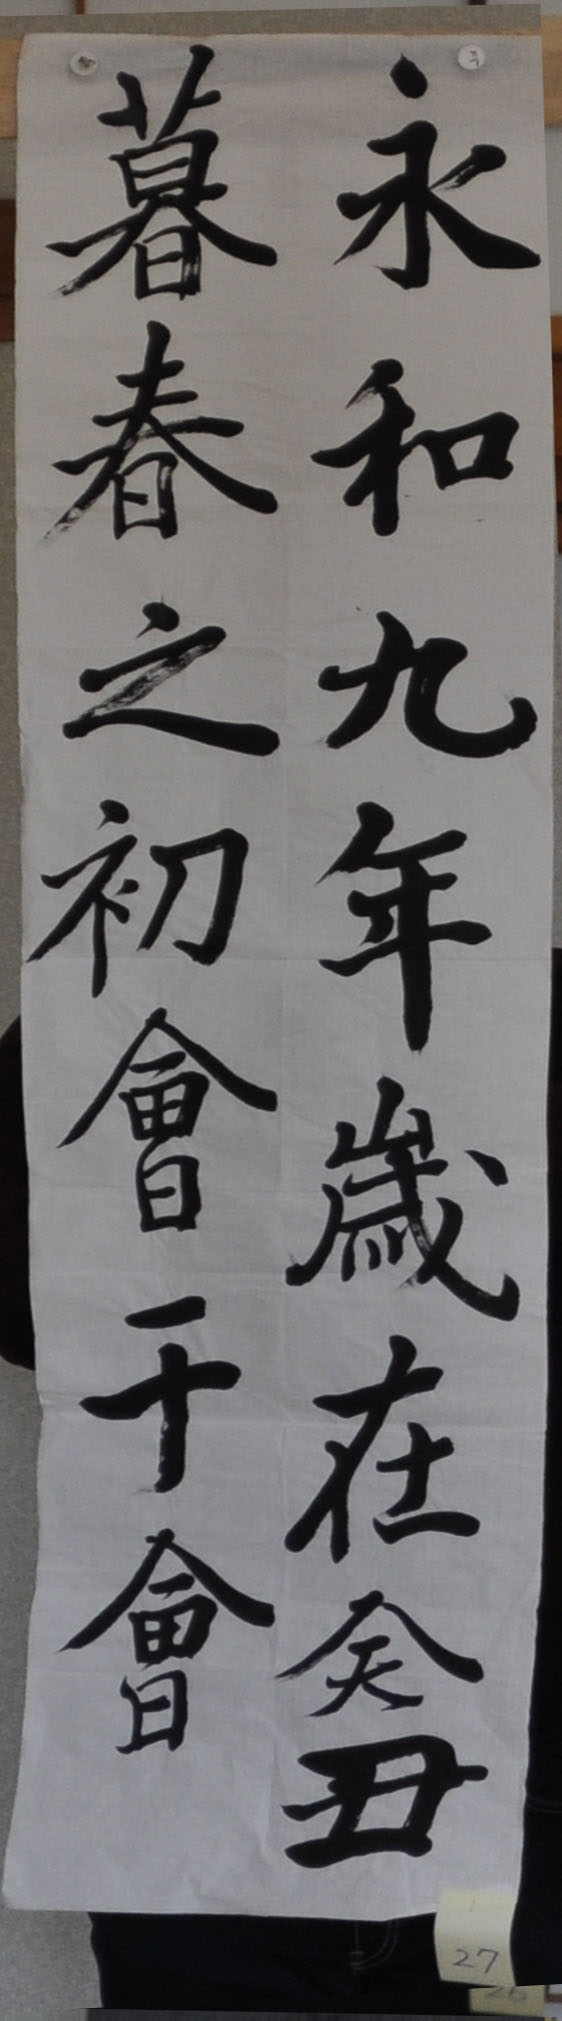 永和九年歳在癸丑
暮春之初會于會
27
26